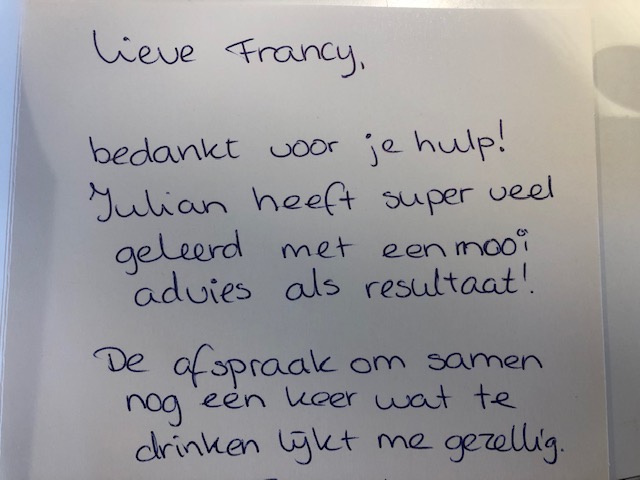 Lieve Francy,
bedankt voor je hulp!
Julian heeft super veel
geleerd met een mooi
advies als resultaat!
De afspraak om samen
nog een keer wat te
drinken lijkt me gezellig.